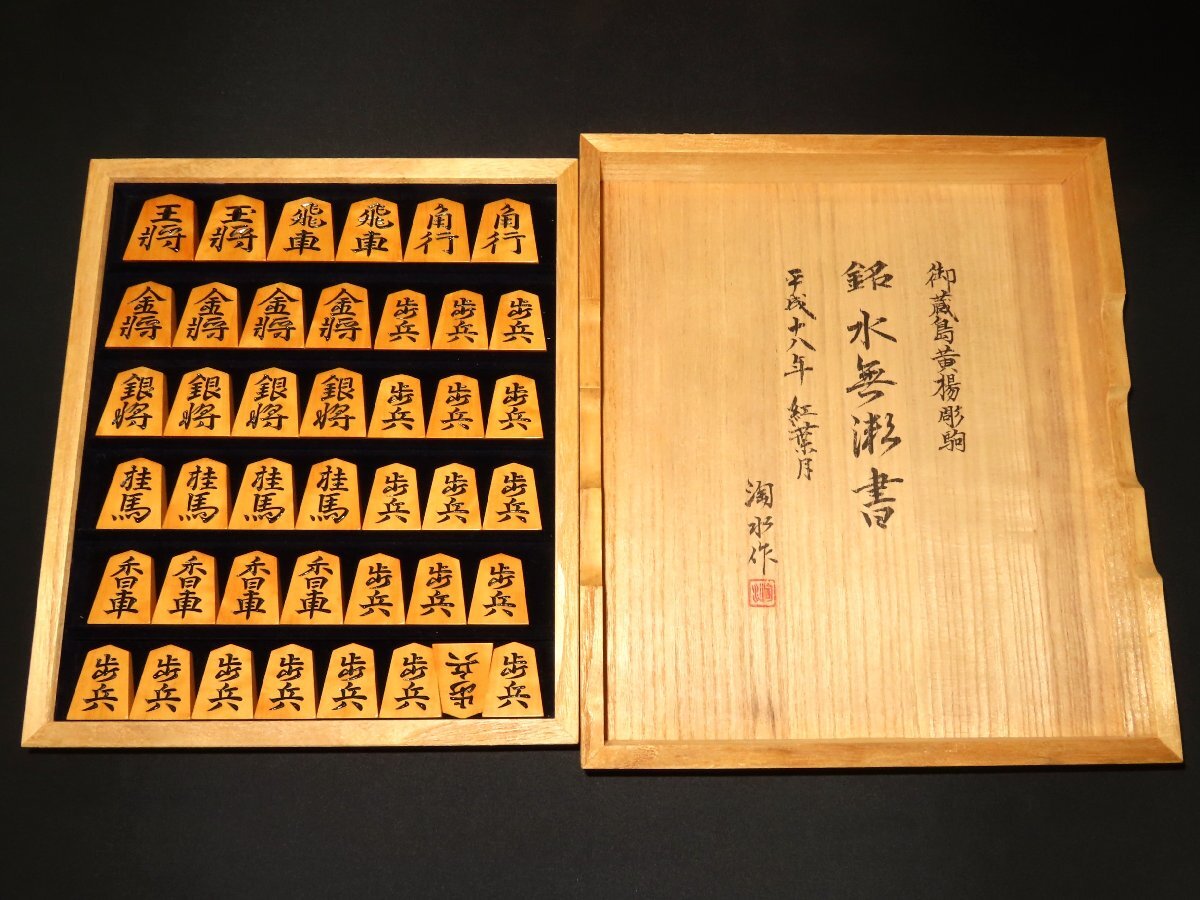 王将 玉将 飛車 飛車 角行 角行
金将 金将 金将 金将 歩兵 歩兵 歩兵
銀将 銀将 銀将 銀将 歩兵 歩兵 歩兵
桂馬 桂馬 桂馬 桂馬 歩兵 歩兵 歩兵
香車 香車 香車 香車 歩兵 歩兵 歩兵
歩兵 歩兵 歩兵 歩兵 歩兵 歩兵 歩兵 歩兵
御蔵島黄楊彫駒
銘 水無瀬書
平成十八年 紅葉月
淘水作